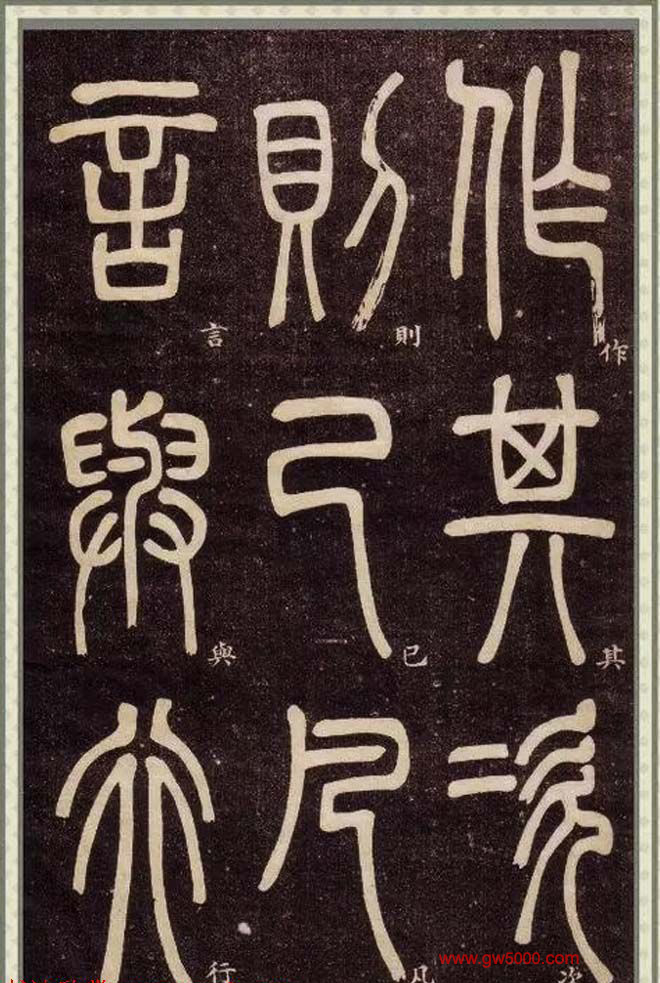 作其次
則已凡
言與行
www.gw5000.com